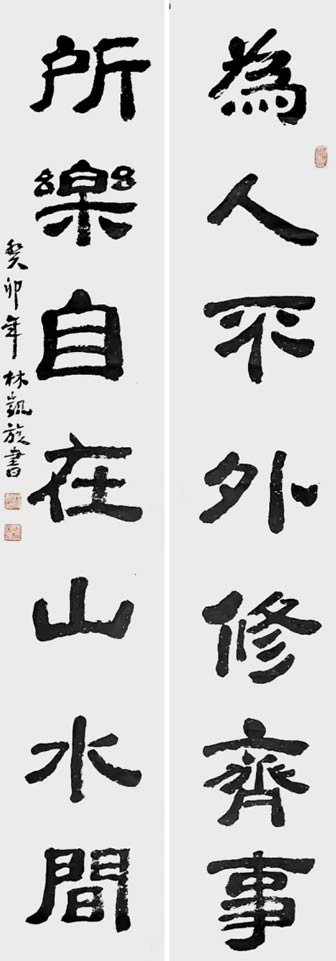 為人不外修齊事
所樂自在山水間
癸卯年林凱旋書